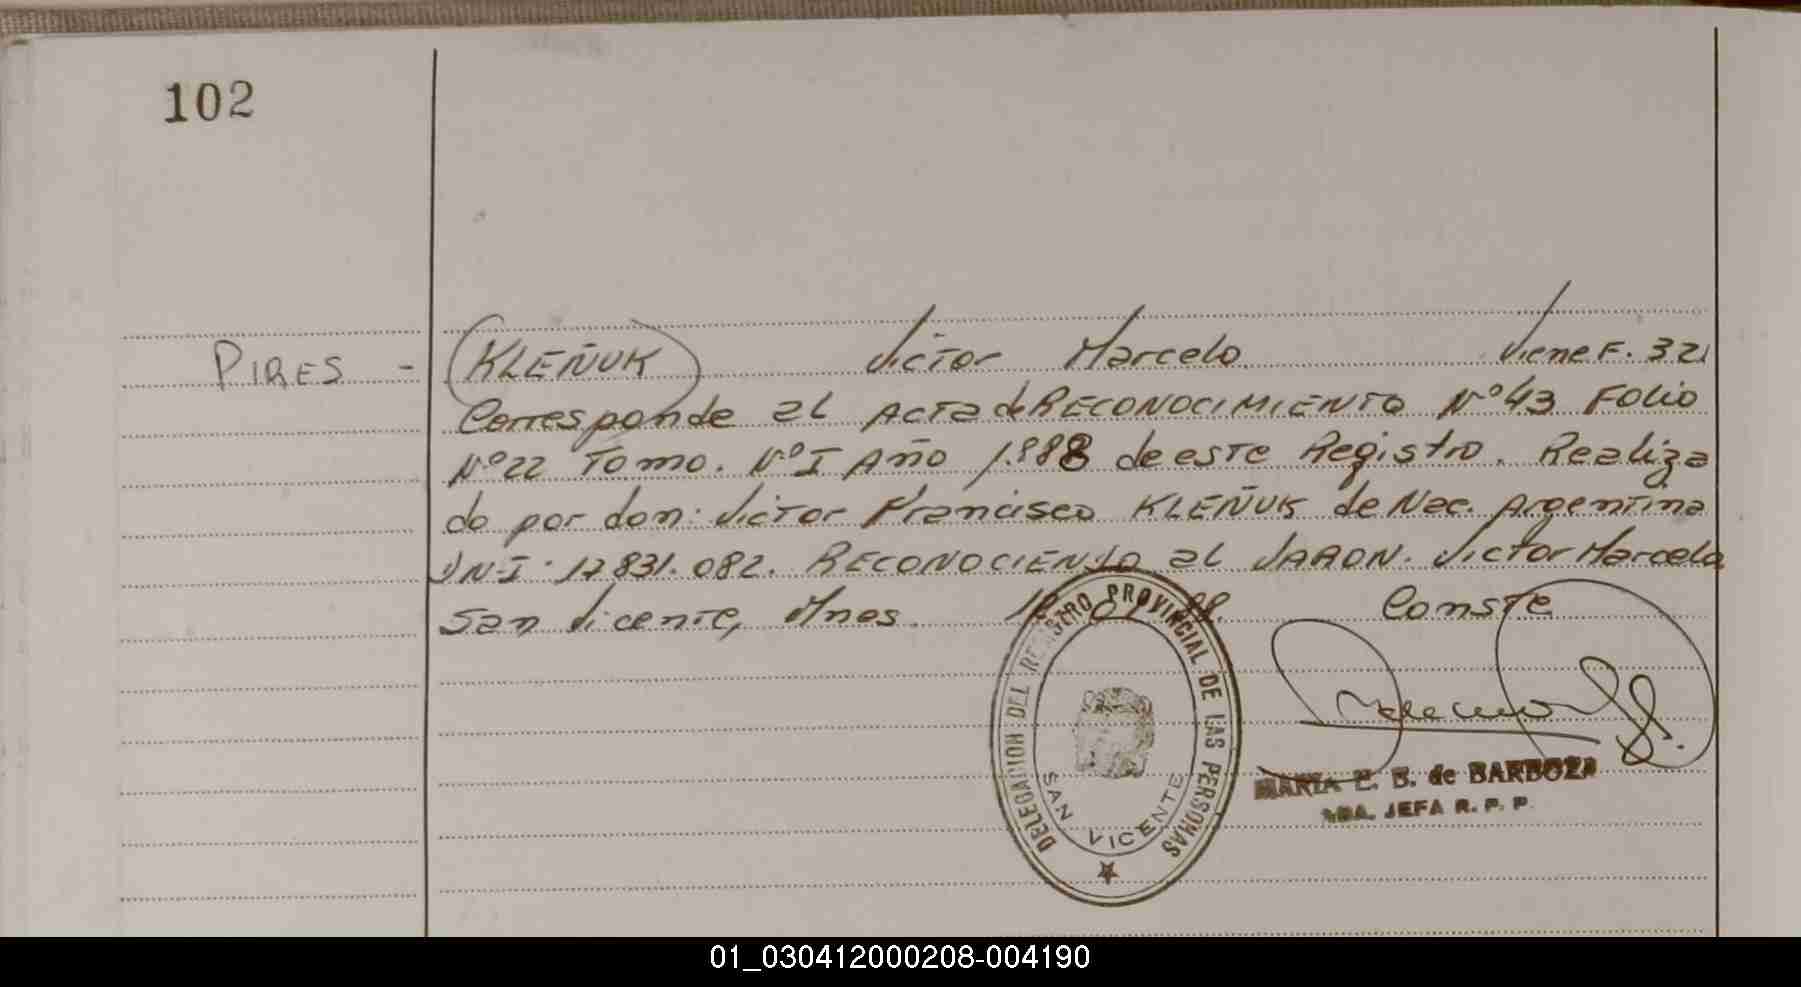 102
PIRES - KLEÑUK Victor Marcelo. Viene F. 321
Corresponde al Acta de RECONOCIMIENTO Nº 43 Folio
Nº 22 Tomo. Nº I Año 1.988 de este Registro. Realiza
do por don: Victor Francisco KLEÑUK de Nac. Argentina
DN-I. 12831.082. RECONOCIENDO al VARON. Victor Marcelo
San Vicente, Mnes. Conste
DELEGACION DEL REGISTRO PROVINCIAL DE LAS PERSONAS
SAN VICENTE
MARIA E. B. de BARBOZA
JEFA R. P. P.
01_030412000208-004190